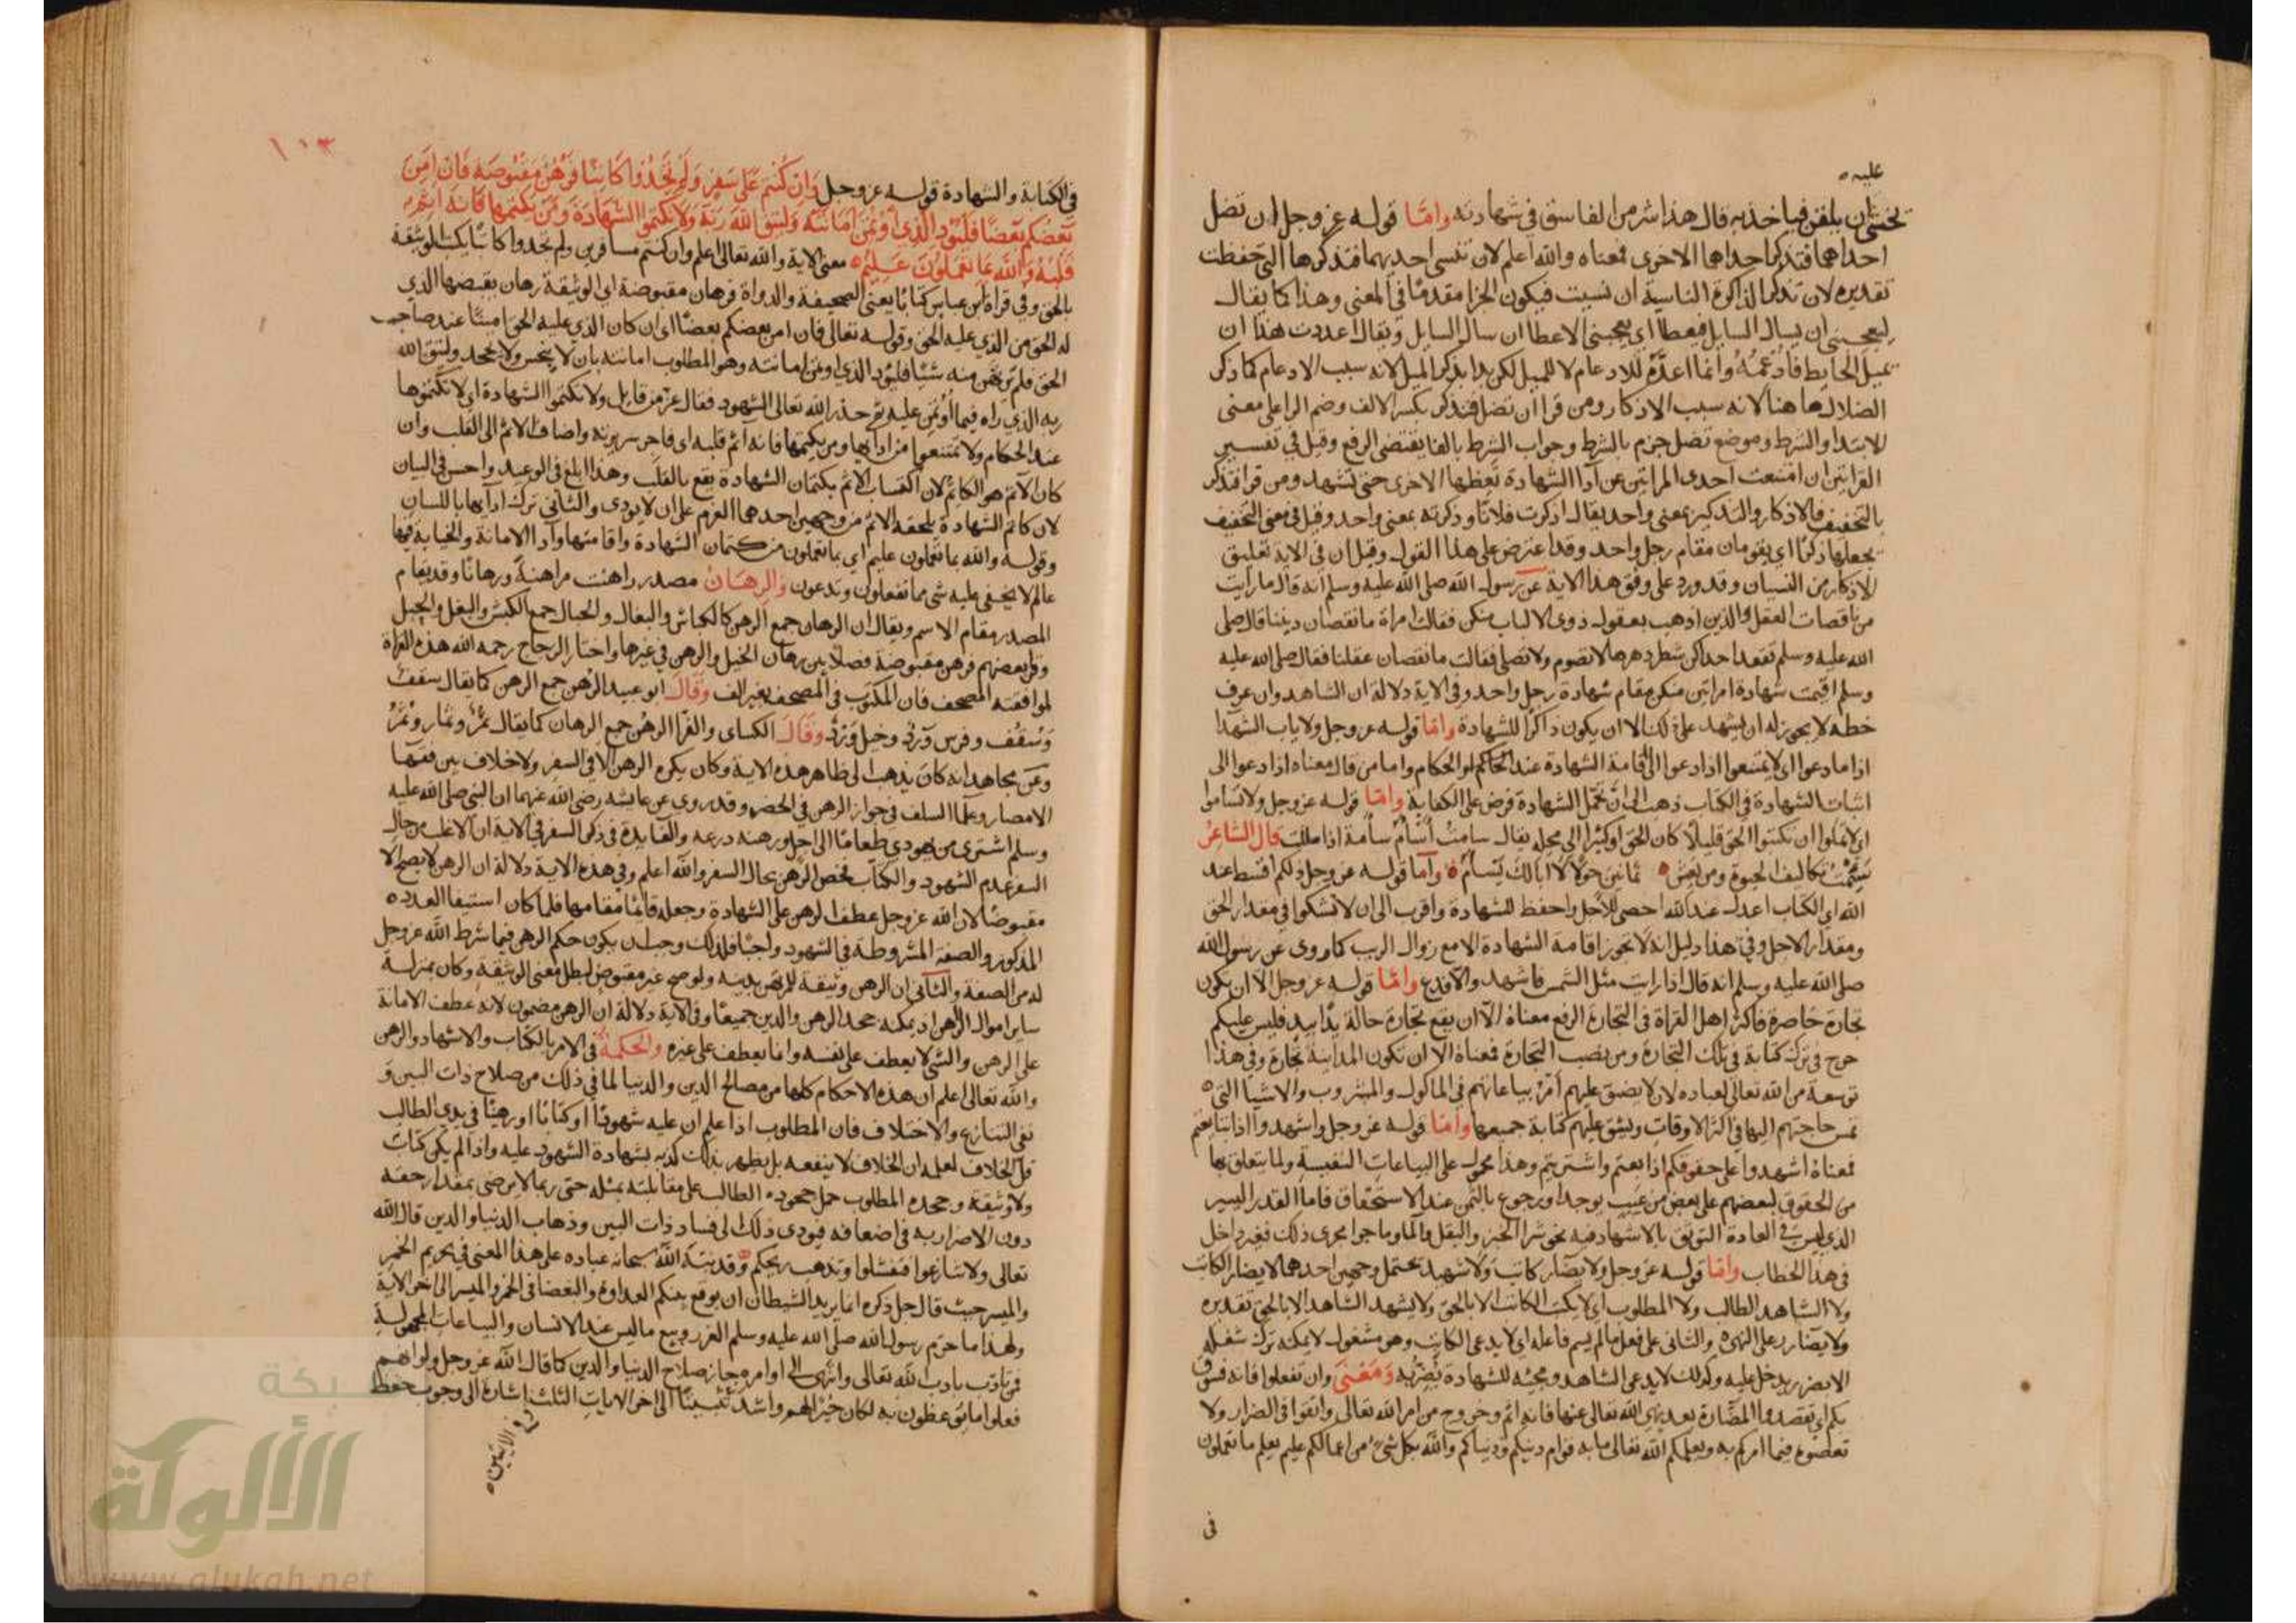 عليه
تخشى ان يلقن فياخذ به قال هذا شر من الفاسق في شهادته وامّا قوله عز وجل ان تضل
احداهما فتذكر احداهما الاخرى فمعناه والله اعلم لان تنسى احديهما فتذكرها التي حفظت
تقديره لان تذكر الذاكرة الناسية ان نسيت فيكون الجزا مقدمًا في المعنى وهذا كما يقال
ليعجبني ان يسال السايل فيعطا اي يعجبني الاعطا ان سال السايل ويقال اعددت هذا ان
يميل الحايط فادعمه وانما اعدّه للادعام لا للميل لكن بدا بذكر الميل لانه سبب الادعام كما ذكر
الضلال ها هنا لانه سبب الاذكار ومن قرا ان تضل فتذكر بكسر الالف وضم الرا على معنى
الابتدا والشرط وموضع تضل جزم بالشرط وجواب الشرط بالفا يقتضى الرفع وقيل في تفسير
القراتين ان امتنعت احدى المراتين عن ادا الشهادة تعظها الاخرى حتى تشهد ومن قرا فتذكر
بالتخفيف فالاذكار والتذكير بمعنى واحد يقال اذكرت فلانًا وذكرته بمعنى واحد وقيل في معنى التخفيف
تجعلها ذكرًا اي يقومان مقام رجل واحد وقد اعترض على هذا القول وقيل ان في الاية تعليق
الاذكار من النسيان وقد ورد على وفق هذا الاية عن رسول الله صلى الله عليه وسلم انه قال ما رايت
من ناقصات العقل والدين اذهب بعقول ذوي الالباب منكن فقالت امراة ما نقصان ديننا قال صلى
الله عليه وسلم تقعد احداكن شطر دهرها لا تصوم ولا تصلي فقالت ما نقصان عقلنا فقال صلى الله عليه
وسلم اقيمت شهادة امراتين منكن مقام شهادة رجل واحد وفي الاية دلالة ان الشاهد وان عرف
خطه لا يجوز له ان يشهد على ذلك الا ان يكون ذاكرًا للشهادة وامّا قوله عز وجل ولا ياب الشهدا
اذا ما دعوا اي لا يمتنعوا اذا دعوا الى اقامة الشهادة عند الحاكم او الحكام واما من قال معناه اذا دعوا الى
اثبات الشهادة في الكتاب ذهب الى ان تحمّل الشهادة فرض على الكفاية وامّا قوله عز وجل ولا تساموا
اي لا تملوا ان تكتبوا الحق قليلًا كان الحق او كبيرًا الى محله يقال سامت اسام سامة اذا مللت قال الشاعر
سئمت تكاليف الحيوة ومن يعش ثمانين حولًا لا ابا لك يسام وامّا قوله عز وجل ذلكم اقسط عند
الله اي الكتاب اعدل عند الله احصى للاجل واحفظ للشهادة واقرب الى ان لا تشكوا في مقدار الحق
ومقدار الاجل وفي هذا دليل انه لا تجوز اقامة الشهادة الا مع زوال الريب كما روى عن رسول الله
صلى الله عليه وسلم انه قال اذا رايت مثل الشمس فاشهد والا فدع وامّا قوله عز وجل الا ان يكون
تجارة حاضرة فاكثر اهل القراة في التجارة الرفع معناه الا ان يقع تجارة حالة يدًا بيد فليس عليكم
حرج في ترك كتابة في تلك التجارة ومن نصب التجارة فمعناه الا ان تكون المداينة تجارة وفي هذا
توسعة من الله تعالى لعباده لان لا يضيق عليهم امر بياعاتهم في الماكول والمشروب والاشيا التي
تمس حاجتهم اليها في اكثر الاوقات ويشق عليهم كتابة جميعها وامّا قوله عز وجل واشهدوا اذا تبايعتم
فمعناه اشهدوا على حقوقكم اذا بعتم واشتريتم وهذا محمول على البياعات النفيسة ولما يتعلق بها
من الحقوق لبعضهم على بعض من عيب يوجد او رجوع بالثمن عند الاستحقاق فاما القدر اليسير
الذي ليس في العادة التوثق بالاشهاد فيه نحو شرا الخبز والبقل والما وما جرا مجرى ذلك فغير داخل
في هذا الخطاب وامّا قوله عز وجل ولا يضار كاتب ولا شهيد يحتمل وجهين احدهما لا يضار الكاتب
ولا الشاهد الطالب ولا المطلوب اي لا يكتب الكاتب الا بالحق ولا يشهد الشاهد الا بالحق تقديره
ولا يضارر على النهي والثاني على فعل ما لم يسم فاعله اي لا يدعى الكاتب وهو مشغول لا يمكنه ترك شغله
الا بضرر يدخل عليه وكذلك لا يدعى الشاهد ومجيئه للشهادة يضر به ومعنى وان تفعلوا فانه فسوق
بكم اي تقصدوا المضارة بعد نهي الله تعالى عنها فانه اثم وخروج من امر الله تعالى واتقوا في الضرار ولا
تعصوه فيما امركم به ويعلمكم الله تعالى ما به قوام دينكم ودنياكم والله بكل شيء من اعمالكم عليم يعلم ما تعملون
في
١٠٣
في الكتابة والشهادة قوله عز وجل وان كنتم على سفر ولم تجدوا كاتبًا فرهن مقبوضة فان امن
بعضكم بعضًا فليؤد الذي اؤتمن امانته وليتق الله ربه ولا تكتموا الشهادة ومن يكتمها فانه اثم
قلبه والله بما تعملون عليم معنى الاية والله تعالى اعلم وان كنتم مسافرين ولم تجدوا كاتبًا يكتب الوثيقة
بالحق وفي قراة ابن عباس كتابًا يعنى الصحيفة والدواة فرهان مقبوضة اي الوثيقة رهان يقبضها الذي
له الحق من الذي عليه الحق وقوله تعالى فان امن بعضكم بعضًا اي ان كان الذي عليه الحق امينًا عند صاحب
الحق فلم يرتهن منه شيًا فليؤد الذي اؤتمن امانته وهو المطلوب امانته بان لا يبخس ولا يجحد وليتق الله
ربه الذي راه فيما اؤتمن عليه ثم حذر الله تعالى الشهود فقال عز من قايل ولا تكتموا الشهادة اي لا تكتموها
عند الحكام ولا تمتنعوا من ادايها ومن يكتمها فانه اثم قلبه اي فاجر سريرته واضاف الاثم الى القلب وان
كان الاثم هو الكاتم لان اكتساب الاثم بكتمان الشهادة يقع بالقلب وهذا ابلغ في الوعيد واحسن في البيان
لان كاتم الشهادة يلحقه الاثم من وجهين احدهما العزم على ان لا يودى والثاني ترك ادايها باللسان
وقوله والله بما تعملون عليم اي بما تعملون من كتمان الشهادة واقامتها وادا الامانة والخيانة فيها
عالم لا يخفى عليه شى مما تفعلون وتدعون والرهان مصدر راهنت مراهنة ورهانًا وقد يقام
المصدر مقام الاسم ويقال ان الرهان جمع الرهن كالكباش والبغال والحبال جمع الكبش والبغل والحبل
وقرا بعضهم فرهن مقبوضة فصلًا بين رهان الخيل والرهن في غيرها واختار الزجاج رحمه الله هذه القراة
لموافقته المصحف فان المكتوب في المصحف بغير الف وقال ابو عبيد الرهن جمع الرهن كما يقال سقف
وسقف وفرس ورد وخيل ورد وقال الكساى والفرا الرهن جمع الرهان كما يقال ثمر وثمار وثمر
وعن مجاهد انه كان يذهب الى ظاهر هذه الاية وكان يكره الرهن الا في السفر ولا خلاف بين فقها
الامصار وعلما السلف في جواز الرهن في الحضر وقد روى عن عايشه رضي الله عنهما ان النبي صلى الله عليه
وسلم اشترى من يهودي طعامًا الى اجل ورهنه درعه والفايدة في ذكر السفر في الاية ان الاغلب من حال
السفر عدم الشهود والكتاب فخص الرهن بحال السفر والله اعلم وفي هذه الاية دلالة ان الرهن لا يصح الا
مقبوضًا لان الله عز وجل عطف الرهن على الشهادة وجعله قايمًا مقامها فلما كان استيفا العدد
المذكور والصفة المشروطة في الشهود واجبًا فلذلك وجب ان يكون حكم الرهن فيما شرط الله عز وجل
له من الصفة والثاني ان الرهن وثيقة للمرتهن بدينه ولو صح غير مقبوض لبطل معنى الوثيقة وكان بمنزلة
ساير اموال الراهن اذ يمكنه جحد الرهن والدين جميعًا وفي الاية دلالة ان الرهن مضمون لانه عطف الامانة
على الرهن والشي لا يعطف على نفسه وانما يعطف على غيره والحكمة في الامر بالكتاب والاشهاد والرهن
والله تعالى اعلم ان هذه الاحكام كلها من مصالح الدين والدنيا لما في ذلك من صلاح ذات البين و
نفى التنازع والاختلاف فان المطلوب اذا علم ان عليه شهودًا او كتابًا او رهنًا في يدي الطالب
قل الخلاف لعلمه ان الخلاف لا ينفعه بل يظهر بذلك كذبه بشهادة الشهود عليه واذا لم يكن كتاب
ولا وثيقة وجحده المطلوب حمل جحوده الطالب على مقابلته بمثله حتى ربما لا يرضى بمقدار حقه
دون الاضرار به في اضعافه فيودى ذلك الى فساد ذات البين وذهاب الدنيا والدين قال الله
تعالى ولا تنازعوا فتفشلوا وتذهب ريحكم وقد نبّه الله سبحانه عباده على هذا المعنى في تحريم الخمر
والميسر حيث قال جل ذكره انما يريد الشيطان ان يوقع بينكم العداوة والبغضا في الخمر والميسر الى اخر الاية
ولهذا ما حرم رسول الله صلى الله عليه وسلم الغرر وبيع ما ليس عند الانسان والبياعات المجهولة
فمن تادّب بادب الله تعالى وانتهى الى اوامره حاز صلاح الدنيا والدين كما قال الله عز وجل ولو انهم
فعلوا ما يوعظون به لكان خيرًا لهم واشد تثبيتًا الى اخر الايات الثلث اشارة الى وجوب حفظ
شبكة
الألوكة
www.alukah.net